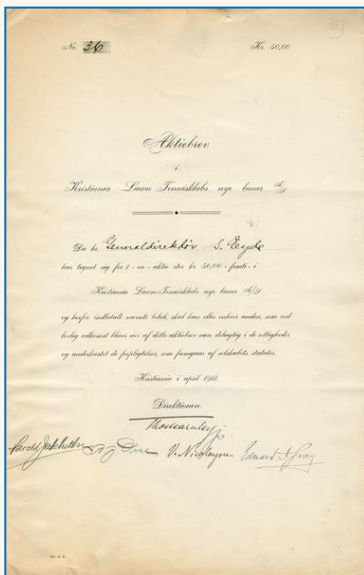 No. 36 Kr. 50,00
Aktiebrev
i
Kristiania Lawn Tennisklubs nye baner A/S
Da hr. Generaldirektør S. Eyde
har tegnet sig for 1 - en - aktie stor kr. 50,00 - femti - i
Kristiania Lawn-Tennisklubs nye baner A/S
og herfor indbetalt nævnte beløb, skal han eller enhver anden, som ved
lovlig adkomst bliver eier af dette aktiebrev være delagtig i de rettigheder
og underkastet de forpligtelser, som fremgaar af selskabets statuter.
Kristiania i april 1911.
Direktionen.
Harold V. Nicolaysen Edward Gray